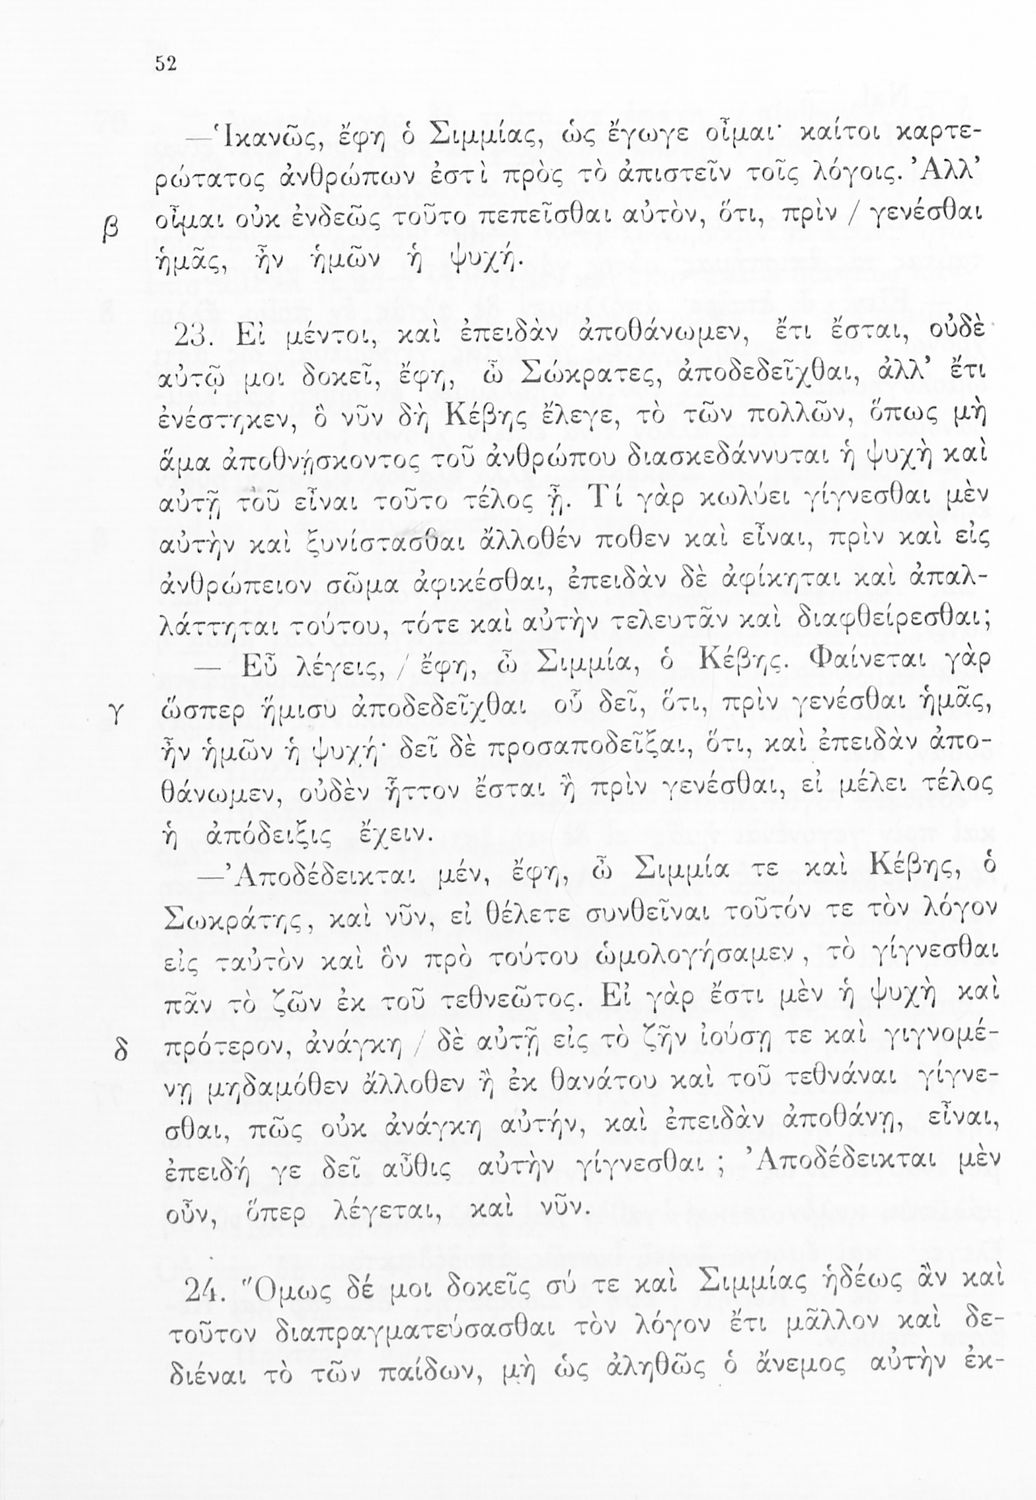 52
—Ἱκανῶς, ἔφη ὁ Σιμμίας, ὡς ἔγωγε οἶμαι· καίτοι καρτε-
ρώτατος ἀνθρώπων ἐστὶ πρὸς τὸ ἀπιστεῖν τοῖς λόγοις. Ἀλλ’
β οἶμαι οὐκ ἐνδεῶς τοῦτο πεπεῖσθαι αὐτὸν, ὅτι, πρὶν / γενέσθαι
ἡμᾶς, ἦν ἡμῶν ἡ ψυχή.
23. Εἰ μέντοι, καὶ ἐπειδὰν ἀποθάνωμεν, ἔτι ἔσται, οὐδὲ
αὐτῷ μοι δοκεῖ, ἔφη, ὦ Σώκρατες, ἀποδεδεῖχθαι, ἀλλ’ ἔτι
ἐνέστηκεν, ὃ νῦν δὴ Κέβης ἔλεγε, τὸ τῶν πολλῶν, ὅπως μὴ
ἅμα ἀποθνῄσκοντος τοῦ ἀνθρώπου διασκεδάννυται ἡ ψυχὴ καὶ
αὐτῇ τοῦ εἶναι τοῦτο τέλος ᾖ. Τί γὰρ κωλύει γίγνεσθαι μὲν
αὐτὴν καὶ ξυνίστασθαι ἄλλοθέν ποθεν καὶ εἶναι, πρὶν καὶ εἰς
ἀνθρώπειον σῶμα ἀφικέσθαι, ἐπειδὰν δὲ ἀφίκηται καὶ ἀπαλ-
λάττηται τούτου, τότε καὶ αὐτὴν τελευτᾶν καὶ διαφθείρεσθαι;
— Εὖ λέγεις, / ἔφη, ὦ Σιμμία, ὁ Κέβης. Φαίνεται γὰρ
γ ὥσπερ ἥμισυ ἀποδεδεῖχθαι οὗ δεῖ, ὅτι, πρὶν γενέσθαι ἡμᾶς,
ἦν ἡμῶν ἡ ψυχή· δεῖ δὲ προσαποδεῖξαι, ὅτι, καὶ ἐπειδὰν ἀπο-
θάνωμεν, οὐδὲν ἧττον ἔσται ἢ πρὶν γενέσθαι, εἰ μέλει τέλος
ἡ ἀπόδειξις ἔχειν.
—Ἀποδέδεικται μέν, ἔφη, ὦ Σιμμία τε καὶ Κέβης, ὁ
Σωκράτης, καὶ νῦν, εἰ θέλετε συνθεῖναι τοῦτόν τε τὸν λόγον
εἰς ταὐτὸν καὶ ὃν πρὸ τούτου ὡμολογήσαμεν, τὸ γίγνεσθαι
πᾶν τὸ ζῶν ἐκ τοῦ τεθνεῶτος. Εἰ γὰρ ἔστι μὲν ἡ ψυχὴ καὶ
δ πρότερον, ἀνάγκη / δὲ αὐτῇ εἰς τὸ ζῆν ἰούσῃ τε καὶ γιγνομέ-
νῃ μηδαμόθεν ἄλλοθεν ἢ ἐκ θανάτου καὶ τοῦ τεθνάναι γίγνε-
σθαι, πῶς οὐκ ἀνάγκη αὐτήν, καὶ ἐπειδὰν ἀποθάνῃ, εἶναι,
ἐπειδή γε δεῖ αὖθις αὐτὴν γίγνεσθαι ; Ἀποδέδεικται μὲν
οὖν, ὅπερ λέγεται, καὶ νῦν.
24. Ὅμως δέ μοι δοκεῖς σύ τε καὶ Σιμμίας ἡδέως ἂν καὶ
τοῦτον διαπραγματεύσασθαι τὸν λόγον ἔτι μᾶλλον καὶ δε-
διέναι τὸ τῶν παίδων, μὴ ὡς ἀληθῶς ὁ ἄνεμος αὐτὴν ἐκ-